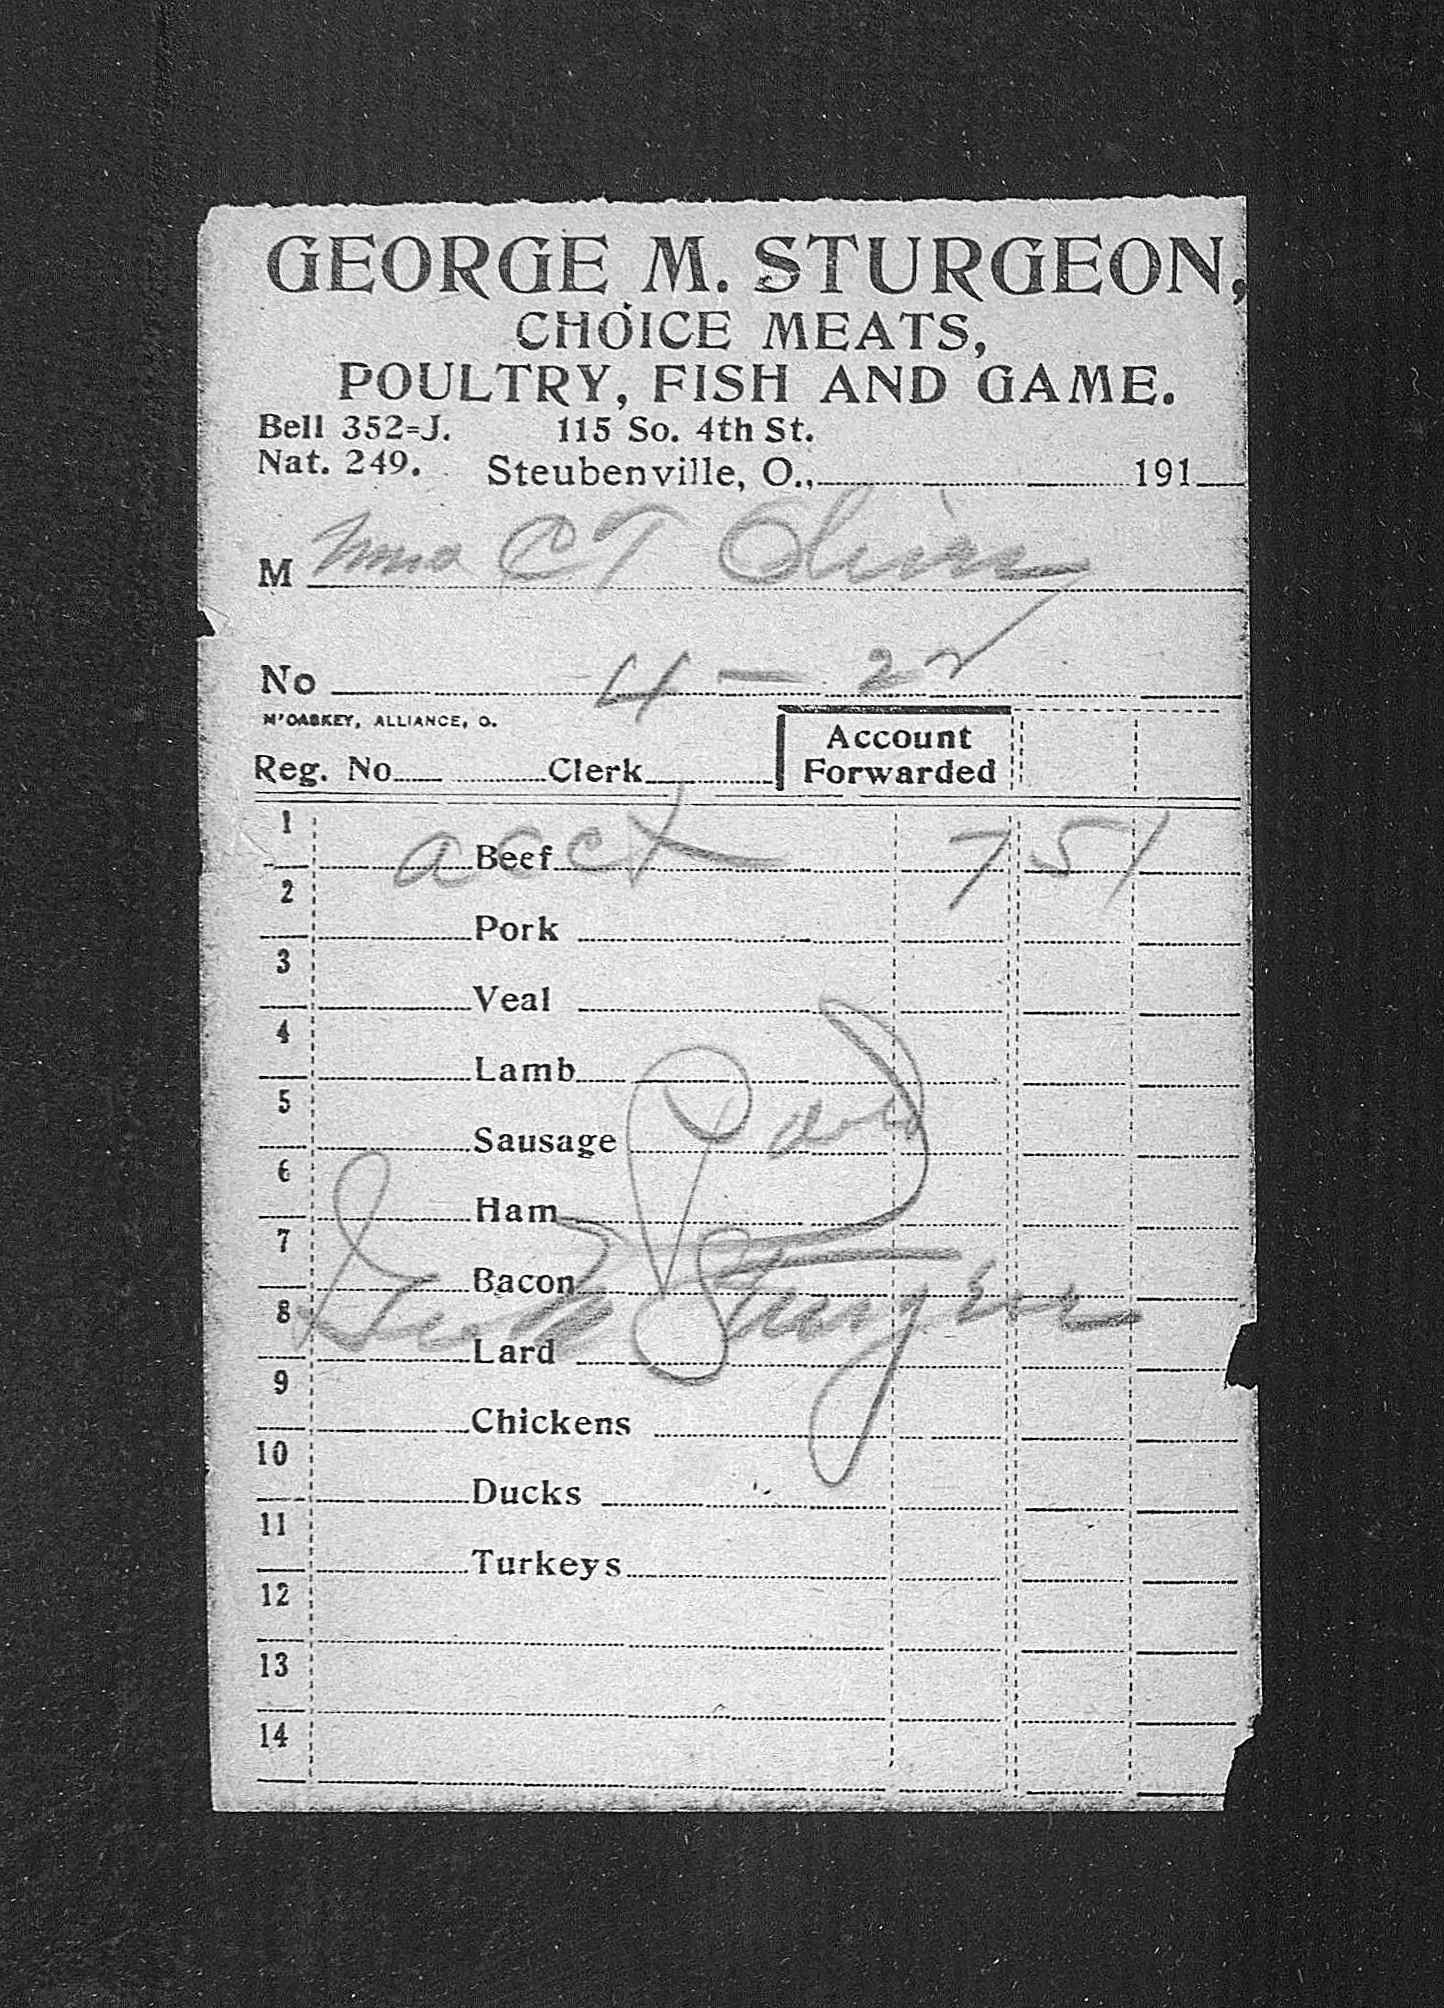 GEORGE M. STURGEON,
CHOICE MEATS,
POULTRY, FISH AND GAME.
Bell 352=J. 115 So. 4th St.
Nat. 249. Steubenville, O., 191
M Mrs CT
No 4 - 22
M'CASKEY, ALLIANCE, O.
Account
Reg. No Clerk Forwarded
1 acct Beef 7 51
2 Pork
3 Veal
4 Lamb
5 Sausage Paid
6 Ham
7 Bacon
Geo M Sturgeon
8 Lard
9 Chickens
10 Ducks
11 Turkeys
12
13
14